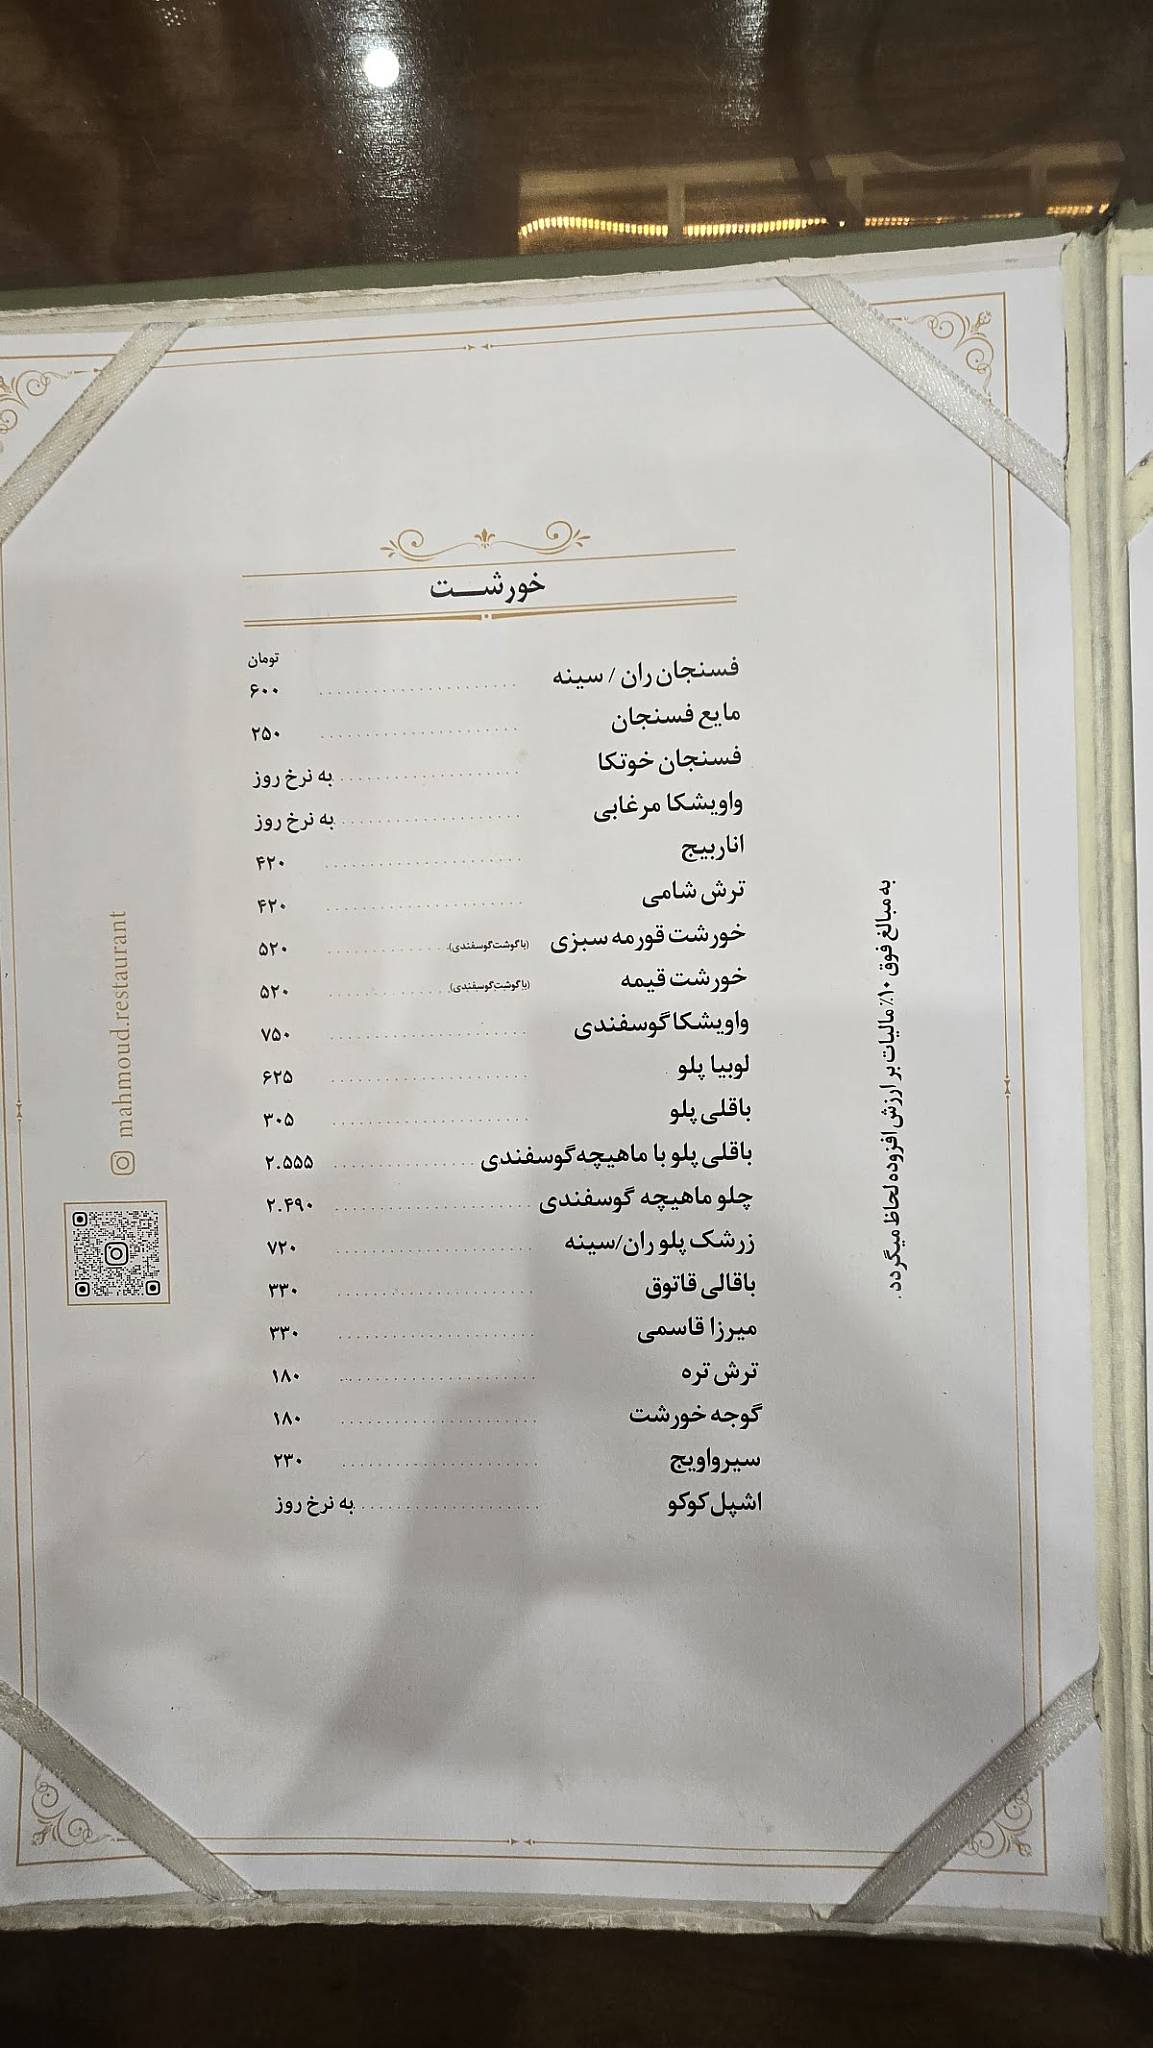 خورشت
تومان
فسنجان ران / سینه ۶۰۰
مایع فسنجان ۲۵۰
فسنجان خوتکا به نرخ روز
واویشکا مرغابی به نرخ روز
اناربیج ۴۲۰
ترش شامی ۴۲۰
خورشت قورمه سبزی (با گوشت گوسفندی) ۵۲۰
خورشت قیمه (با گوشت گوسفندی) ۵۲۰
واویشکا گوسفندی ۷۵۰
لوبیا پلو ۶۲۵
باقلی پلو ۳۰۵
باقلی پلو با ماهیچه گوسفندی ۲.۵۵۵
چلو ماهیچه گوسفندی ۲.۴۹۰
زرشک پلو ران/سینه ۷۲۰
باقالی قاتوق ۳۳۰
میرزا قاسمی ۳۳۰
ترش تره ۱۸۰
گوجه خورشت ۱۸۰
سیرواویج ۲۳۰
اشپل کوکو به نرخ روز
به مبالغ فوق ۱۰٪ مالیات بر ارزش افزوده لحاظ میگردد.
mahmoud.restaurant